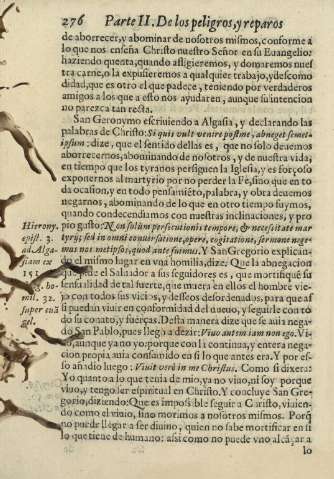 276 Parte II. De los peligros, y reparos
de aborrecer, y abominar de nosotros mismos, conforme a
lo que nos enseña Christo nuestro Señor en su Euangelio:
haziendo quenta, quando afligieremos, y domaremos nues
tra carne, o la expusieremos a qualquier trabajo, y descomo
didad, que es otro el que padece, teniendo por verdaderos
amigos a los que a esto nos ayudaren, aunque su intencion
no parezca tan recta.
San Geronymo escriuiendo a Algasia, y declarando las
palabras de Christo: Si quis vult venire post me, abneget semet-
ipsum: dize, que el sentido dellas es, que no solo deuemos
aborrecernos, abominando de nosotros, y de nuestra vida,
en tiempo que los tyranos persiguen la Iglesia, y es forçoso
exponernos al martyrio por no perder la Fè, sino que en to
da ocasion, y en todo pensamiẽto, palabra, y obra deuemos
negarnos, abominando de lo que en otro tiempo fuymos,
quando condecendiamos con nuestras inclinaciones, y pro
pio gusto: Non solùm persecutionis tempore, & necessitate mar
tyrij; sed in omni conuersatione, opere, cogitatione, sermone nege-
mus nosmetipsos, quod ante fuimus. Y San Gregorio explican-
do el mismo lugar en vna homilia, dize: Que la abnegacion
que pide el Saluador a sus seguidores es, que mortifiquẽ su
sensualidad de tal suerte, que muera en ellos el hombre vie-
jo con todos sus vicios, y desseos desordenados, para que as
si puedan viuir en conformidad del nueuo, y seguirle con to
do su conato, y fuerças. Desta manera dize que se auia nega-
do San Pablo, pues llegò a dezir: Viuo autem iam non ego. Vi-
uo, aunque ya no yo: porque con la continua, y entera nega-
cion propia auia consumido en sì lo que antes era. Y por es-
so añadio luego: Viuit verò in me Christus. Como si dixera:
Yo quanto a lo que tenia de mio, ya no viuo, ni soy porque
viuo, y tengo ser espiritual en Christo. Y concluye San Gre-
gorio, diziendo: Que es impossible seguir a Christo, viuien-
do como el viuio, sino morimos a nosotros mismos. Porq̃
no puede llegar a ser diuino, quien no sabe mortificar en sì
lo que tiene de humano: assi como no puede vno alcãçar a
lo
Hierony.
epist. 3.
ad Alga-
siam
151.
ho-
mil. 32.
super euã
gel.